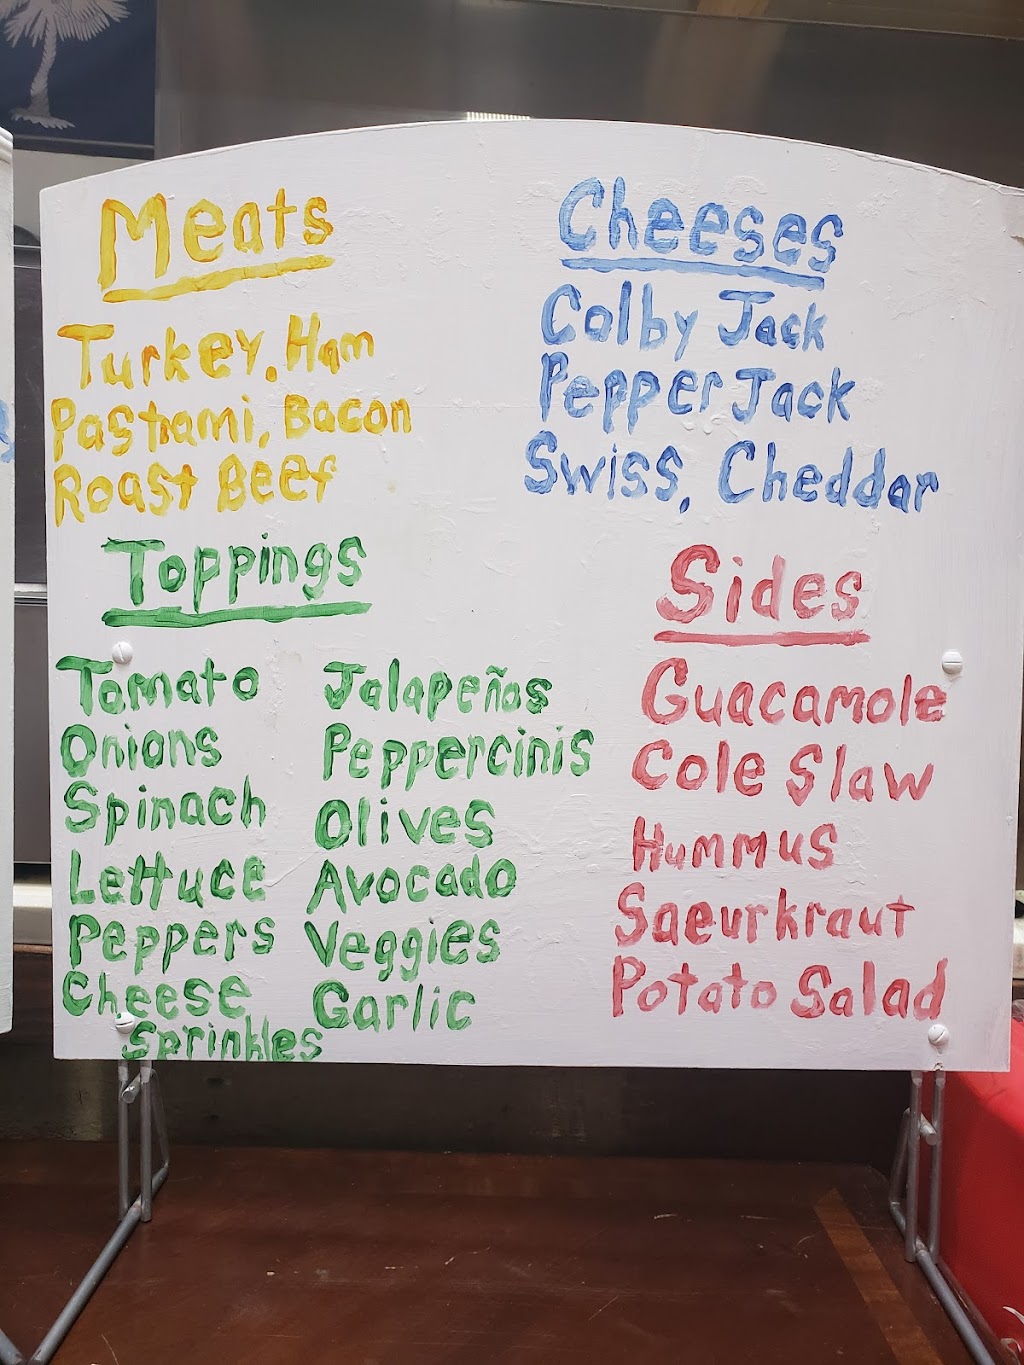 Meats
Turkey, Ham
Pastrami, Bacon
Roast Beef
Cheeses
Colby Jack
Pepper Jack
Swiss, Cheddar
Toppings
Tomato
Onions
Spinach
Lettuce
Peppers
Cheese
Sprinkles
Jalapeños
Peppercinis
Olives
Avocado
Veggies
Garlic
Sides
Guacamole
Cole Slaw
Hummus
Saeurkraut
Potato Salad